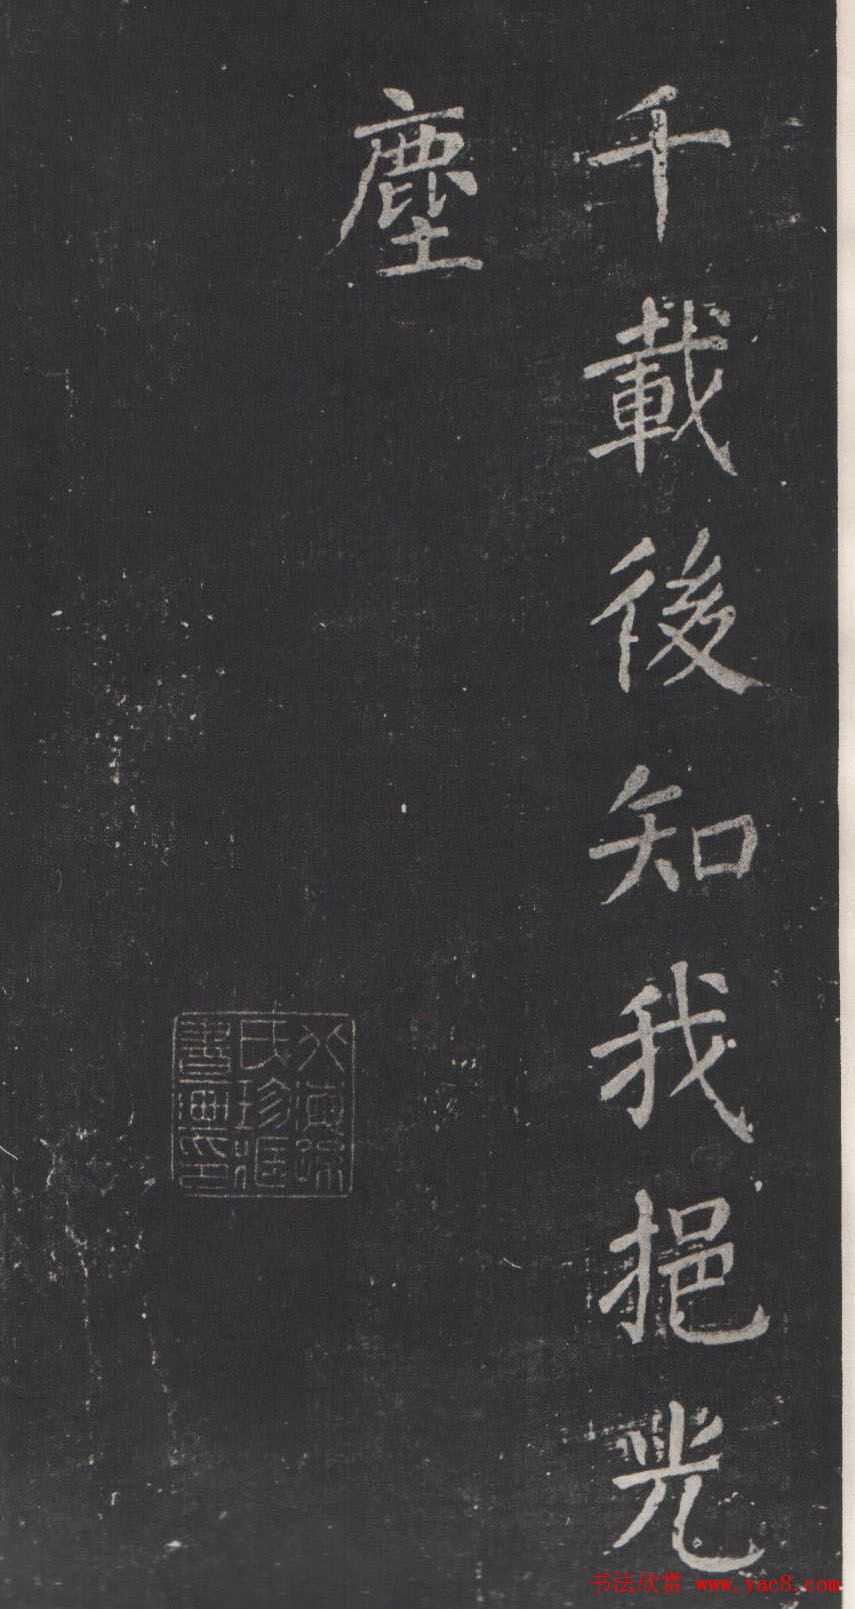 千載後知我挹光
塵
氏珍
書画
书法欣赏 www.yac8.com